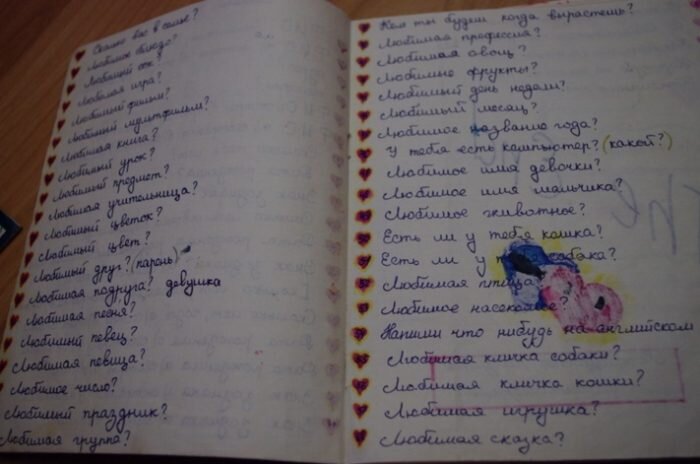 Сколько вас в семье?
Любимое блюдо?
Любимый сок?
Любимая игра?
Любимый фильм?
Любимый мультфильм?
Любимая книга?
Любимый урок?
Любимый предмет?
Любимая учительница?
Любимый цветок?
Любимый цвет?
Любимый друг? (пароль)
Любимая подруга? девушка
Любимая песня?
Любимый певец?
Любимая певица?
Любимое число?
Любимый праздник?
Любимая группа?
Кем ты будеш когда вырастешь?
Любимая профессия?
Любимая овощ?
Любимые фрукты?
Любимый день недели?
Любимый месяц?
Любимое название года?
У тебя есть компьютер? (какой?)
Любимое имя девочки?
Любимое имя мальчика?
Любимое животное?
Есть ли у тебя кошка?
Есть ли у собака?
Любимая птица
Любимое насекомое?
Напиши что нибудь на английском
Любимая кличка собаки?
Любимая кличка кошки?
Любимая игрушка?
Любимая сказка?